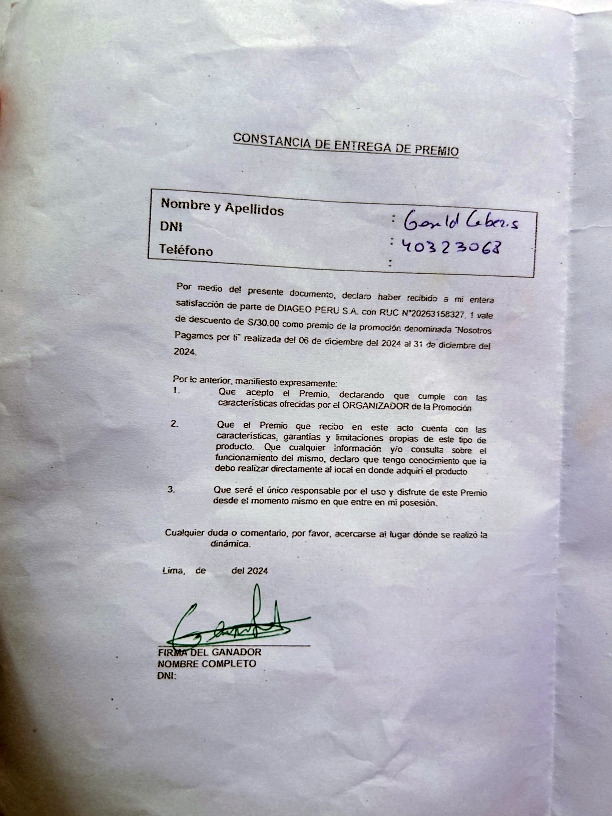 CONSTANCIA DE ENTREGA DE PREMIO
Nombre y Apellidos : Gerald
DNI : 40323063
Teléfono :
Por medio del presente documento, declaro haber recibido a mi entera
satisfacción de parte de DIAGEO PERU S.A. con RUC N°20263158327, 1 vale
de descuento de S/30.00 como premio de la promoción denominada "Nosotros
Pagamos por ti" realizada del 06 de diciembre del 2024 al 31 de diciembre del
2024.
Por lo anterior, manifiesto expresamente:
1. Que acepto el Premio, declarando que cumple con las
características ofrecidas por el ORGANIZADOR de la Promoción
2. Que el Premio que recibo en este acto cuenta con las
características, garantías y limitaciones propias de este tipo de
producto. Que cualquier información y/o consulta sobre el
funcionamiento del mismo, declaro que tengo conocimiento que la
debo realizar directamente al local en donde adquirí el producto
3. Que seré el único responsable por el uso y disfrute de este Premio
desde el momento mismo en que entre en mi posesión.
Cualquier duda o comentario, por favor, acercarse al lugar dónde se realizó la
dinámica.
Lima, de del 2024
FIRMA DEL GANADOR
NOMBRE COMPLETO
DNI: